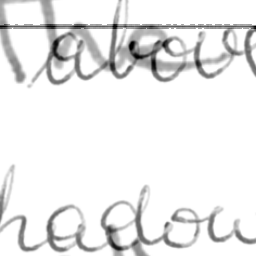 above
hadow